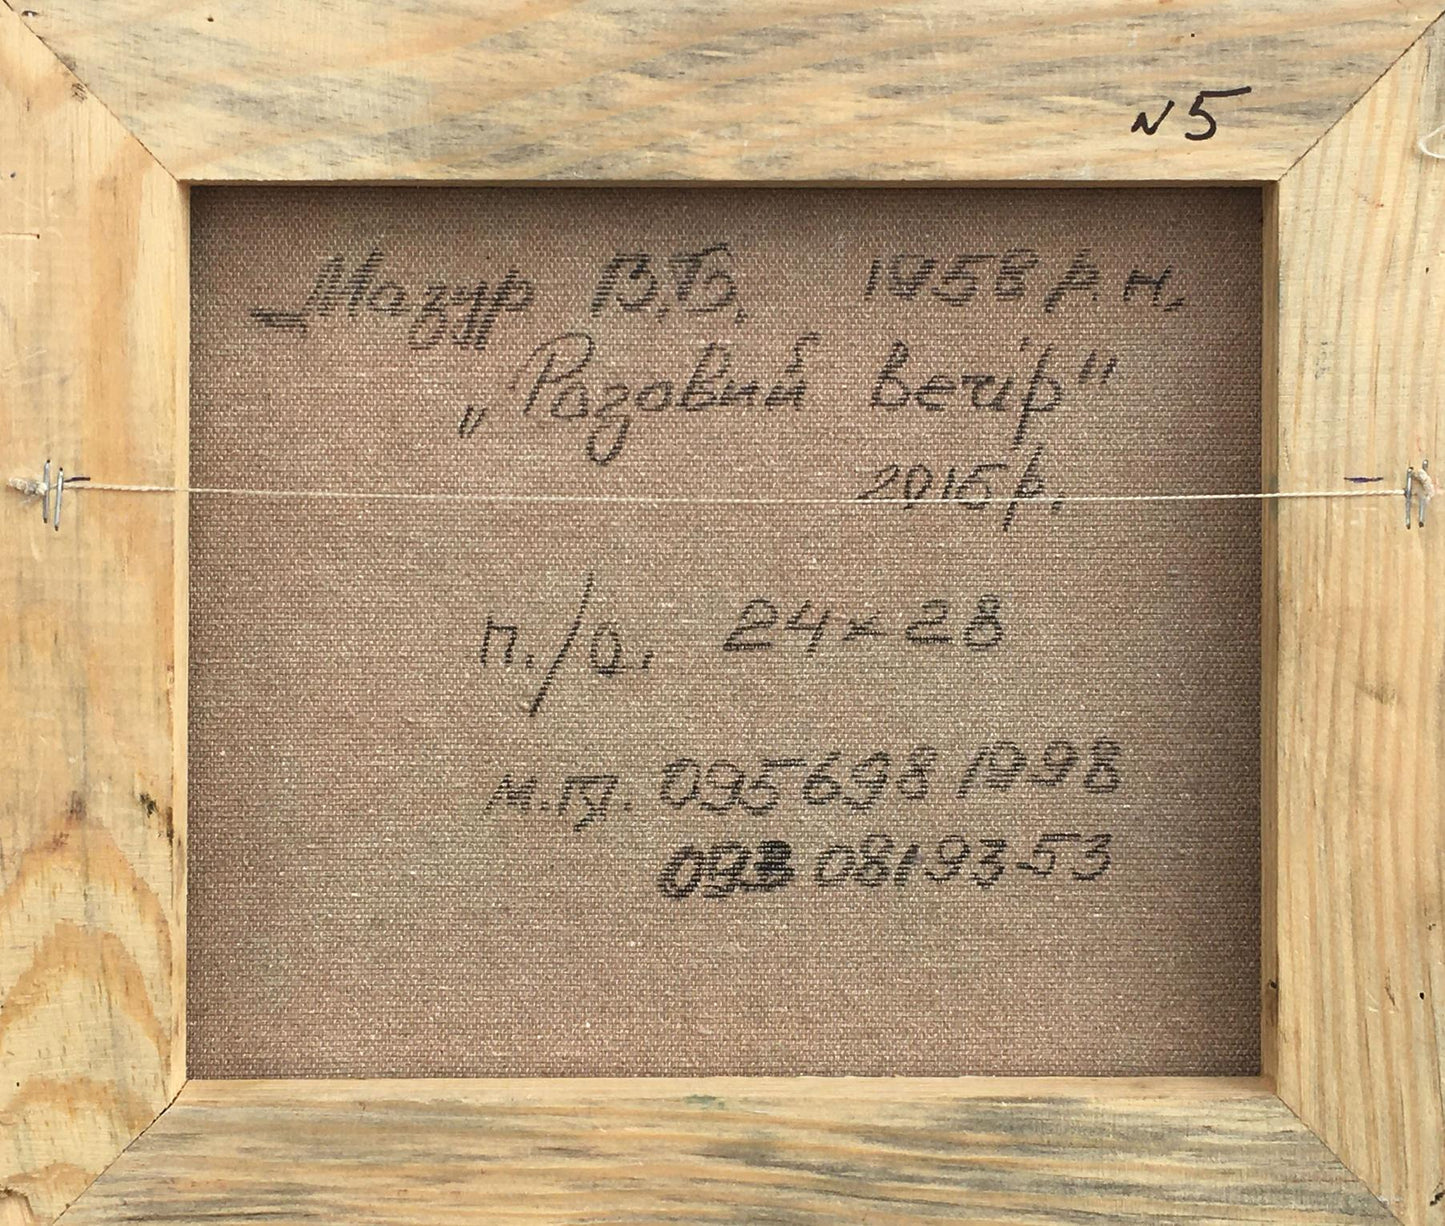 N 5
Мазур В.Б. 1958 р.н.
„Розовий вечір"
2016 р.
п./о. 24 x 28
м.т. 095 698 1998
093 08193-53